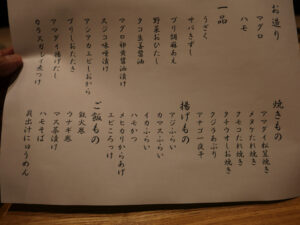 お造り
マグロ
ハモ
一品
うざく
サバきずし
ブリ胡麻あえ
野菜おひたし
タコ生姜醤油
マグロ卵黄醤油漬け
スジコ味噌漬け
アシアカエビしおから
ブリしおたたき
アマダイ揚げだし
カラスガレイ煮つけ
焼きもの
アマダイ松笠焼き
メダイたれ焼き
タチウオしお焼き
クジラあぶり
アナゴ一夜干
揚げもの
アジふらい
カマスふらい
イカふらい
ハモかつ
メヒカリからあげ
エビころっけ
ご飯もの
鉄火巻
ウナギ巻
マス茶漬け
ハモそば
貝出汁にゅうめん